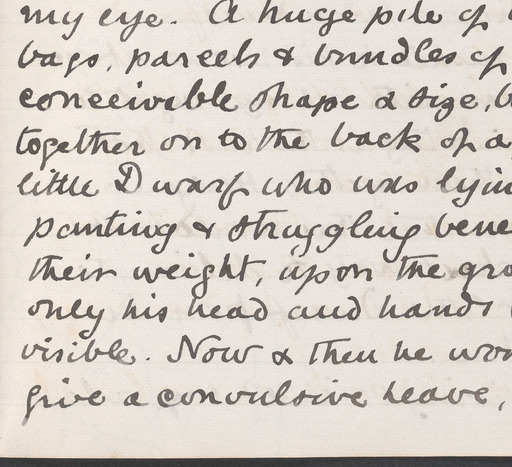 my eye. A huge pile of
bags, parcels & bundles of
conceivable shape & size,
together on to the back of a
little Dwarf who was
panting & struggling
their weight, upon the
only his head and hands
visible. Now & then he
give a convulsive heave,